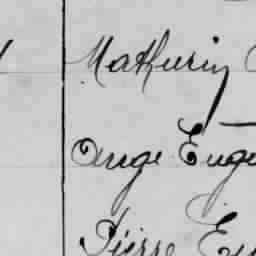 Mathurin
Ange Eugè
Pierre Eu